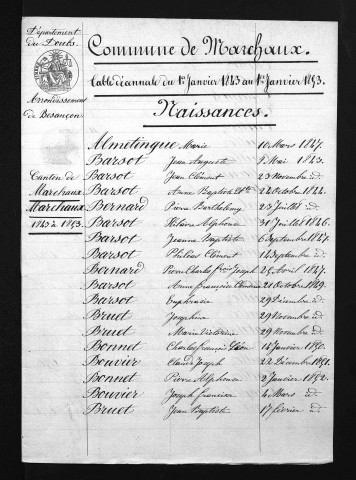 Département
du Doubs.
Arrondissement
de Besançon
Canton de
Marchaux
Marchaux
1843 à 1853.
Commune de Marchaux.
Table décennale du 1er Janvier 1843 au 1er Janvier 1853.
Naissances.
Almetingue Marie 10 Mars 1847.
Barsot Jean Auguste 9 Mai 1843.
Barsot Jean Clément 23 Novembre id.
Barsot Anne Baptiste 24 Octobre 1844.
Bernard Pierre Barthelemy 23 Juillet id.
Barsot Hilaire Alphonse 31 Juillet 1846.
Barsot Jeanne Baptiste 6 Septembre 1847.
Barsot Clément 14 Septembre id.
Bernard Pierre Charles Joseph 25 Avril 1847.
Barsot Anne françoise 21 Octobre 1849.
Barsot Euphrasie 29 Décembre id.
Bruet Josephine 29 Novembre id.
Bruet Marie Victorine 29 Novembre id.
Bonnet Charles françois Léon 14 Janvier 1850.
Bouvier Claude Joseph 22 Décembre 1851.
Bonnet Pierre Alphonse 2 Janvier 1852.
Bouvier Joseph francisce 4 Mars id.
Bruet Jean Baptiste 17 février id.